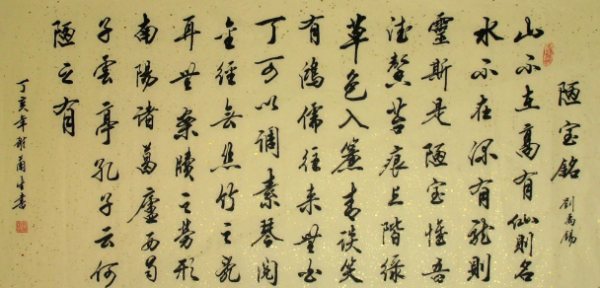 陋室銘
劉禹錫
山不在高有仙則名
水不在深有龍則
靈斯是陋室惟吾
德馨苔痕上階綠
草色入簾青談笑
有鴻儒往來無白
丁可以調素琴閱
金經無絲竹之亂
耳無案牘之勞形
南陽諸葛廬西蜀
子雲亭孔子云何
陋之有
丁亥年書